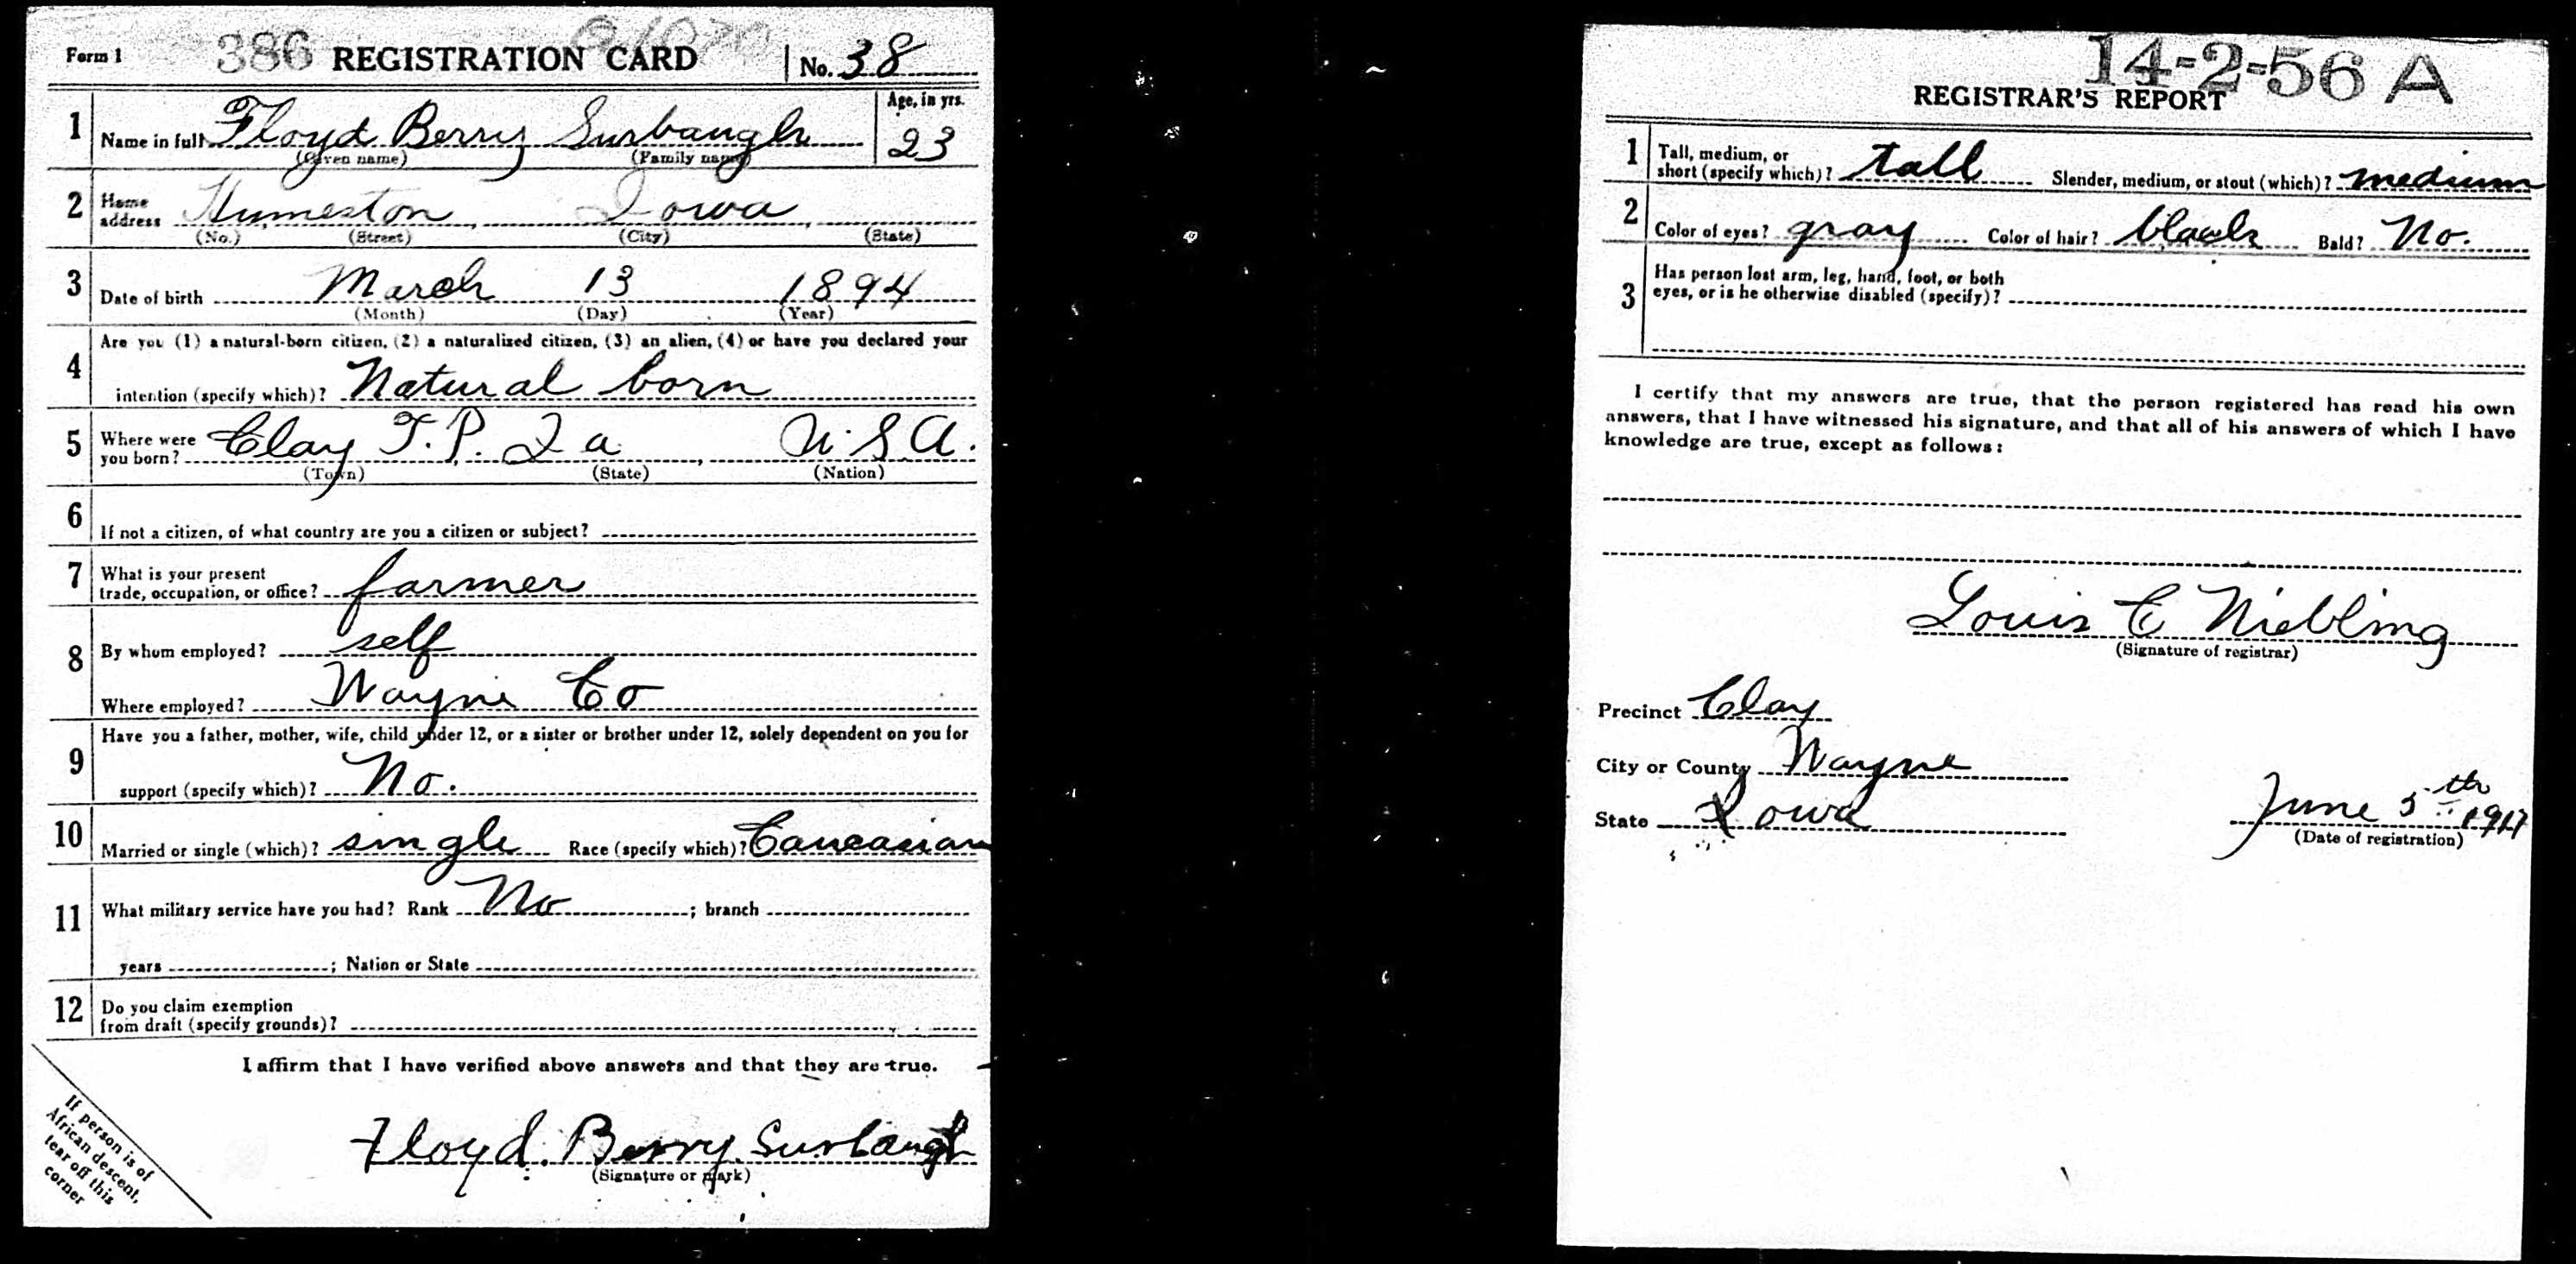 Form 1 386 REGISTRATION CARD No. 38
1 Name in full Floyd Berry Surbaugh Age, in yrs. 23
(Given name) (Family name)
2 Home address Humeston, Iowa,
(No.) (Street) (City) (State)
3 Date of birth March 13 1894
(Month) (Day) (Year)
4 Are you (1) a natural-born citizen, (2) a naturalized citizen, (3) an alien, (4) or have you declared your
intention (specify which)? Natural born
5 Where were you born? Clay T.P. Ia U.S.A.
(Town) (State) (Nation)
6 If not a citizen, of what country are you a citizen or subject?
7 What is your present
trade, occupation, or office? farmer
8 By whom employed? self
Where employed? Wayne Co
9 Have you a father, mother, wife, child under 12, or a sister or brother under 12, solely dependent on you for
support (specify which)? No.
10 Married or single (which)? single Race (specify which)? Caucasian
11 What military service have you had? Rank No ; branch
years ; Nation or State
12 Do you claim exemption
from draft (specify grounds)?
I affirm that I have verified above answers and that they are true.
Floyd. Berry. Surbaugh
(Signature or mark)
If person is of
African descent,
tear off this
corner
14-2-56 A
REGISTRAR'S REPORT
1 Tall, medium, or
short (specify which)? tall Slender, medium, or stout (which)? medium
2 Color of eyes? gray Color of hair? black Bald? No.
3 Has person lost arm, leg, hand, foot, or both
eyes, or is he otherwise disabled (specify)?
I certify that my answers are true, that the person registered has read his own
answers, that I have witnessed his signature, and that all of his answers of which I have
knowledge are true, except as follows:
Louis E Niebling
(Signature of registrar)
Precinct Clay
City or County Wayne
State Iowa June 5th 1917
(Date of registration)